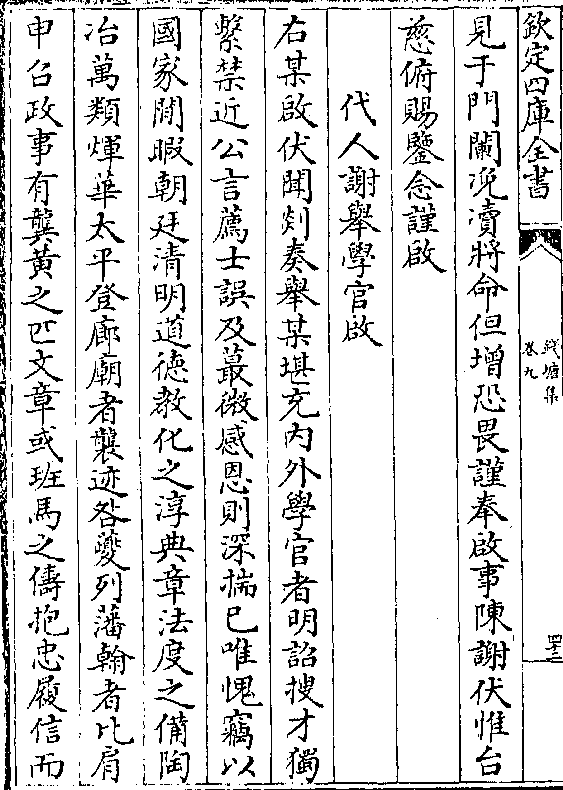 欽定四庫全書
錢塘集
卷九
四十二
見于門闌況瀆將命但增恐畏謹奉啟事陳謝伏惟台
慈俯賜鑒念謹啟
代人謝舉學官啟
右某啟伏聞剡奏舉某堪充內外學官者明詔搜才獨
繫禁近公言薦士誤及蕞微感恩則深揣己唯愧竊以
國家閒暇朝廷清明道德教化之淳典章法度之備陶
冶萬類煇華太平登廊廟者襲迹咎夔列藩翰者比肩
申召政事有龔黃之匹文章或班馬之儔抱忠履信而